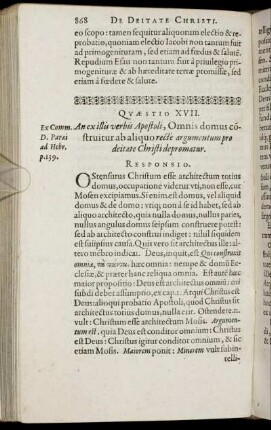 868 DE DEITATE CHRISTI.
eo scopo: tamen sequitur aliquorum electio & re-
probatio, quoniam electio Iacobi non tantum fuit
ad primogenituram, sed etiam ad fœdus & salutē.
Repudium Esau non tantum fuit à priuilegio pri-
mogenituræ & ab hæreditate terræ promissæ, sed
etiam à fœdere & salute.
QVÆSTIO XVII.
Ex Comm.
D. Parai
ad Hebr.
p.139.
An ex illis verbis Apostoli, Omnis domus cō-
struitur ab aliquo rectè argumentum pro
deitate Christi depromatur.
RESPONSIO.
OStensurus Christum esse architectum totius
domus, occupatione videtur vti, non esse, cur
Mosen excipiamus. Si enim vel totius, vel aliquid
domus & de domo: vtiq; non à se id habet, sed ab
aliquo accepit, quia nulla domus, nullus paries,
nullus angulus domus seipsum construere potest:
sed ab architecto construi indiget: nihil siquidem
est suiipsius causa. Quis vero sit architectus ille: al-
tero mēbro indicat. Deus, inquit, est Qui construxit
omnia, hæc omnia: nempe & domū Ec-
clesiæ, & præter hanc reliqua omnia. Est autē hæc
maior propositio: Deus est architectus omniū: cui
subdi debet assumptio, ex cap. 1. Atqui Christus est
Deus: alioqui probatio Apostoli, quod Christus sit
architectus totius domus, nulla erit. Ostendere n.
vult: Christum esse architectum Mosis. Argumen-
tum est, quia Deus est conditor omnium: Christus
est Deus: Christus igitur conditor omnium, & sic
etiam Mosis. Maiorem ponit: Minorem vult subin-
telli-